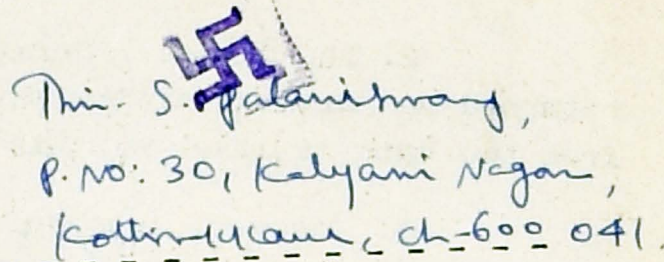 Thiru. S. Palaniswamy,
P. NO: 30, Kalyani Nagar,
Kottivakkam, ch-600 041.